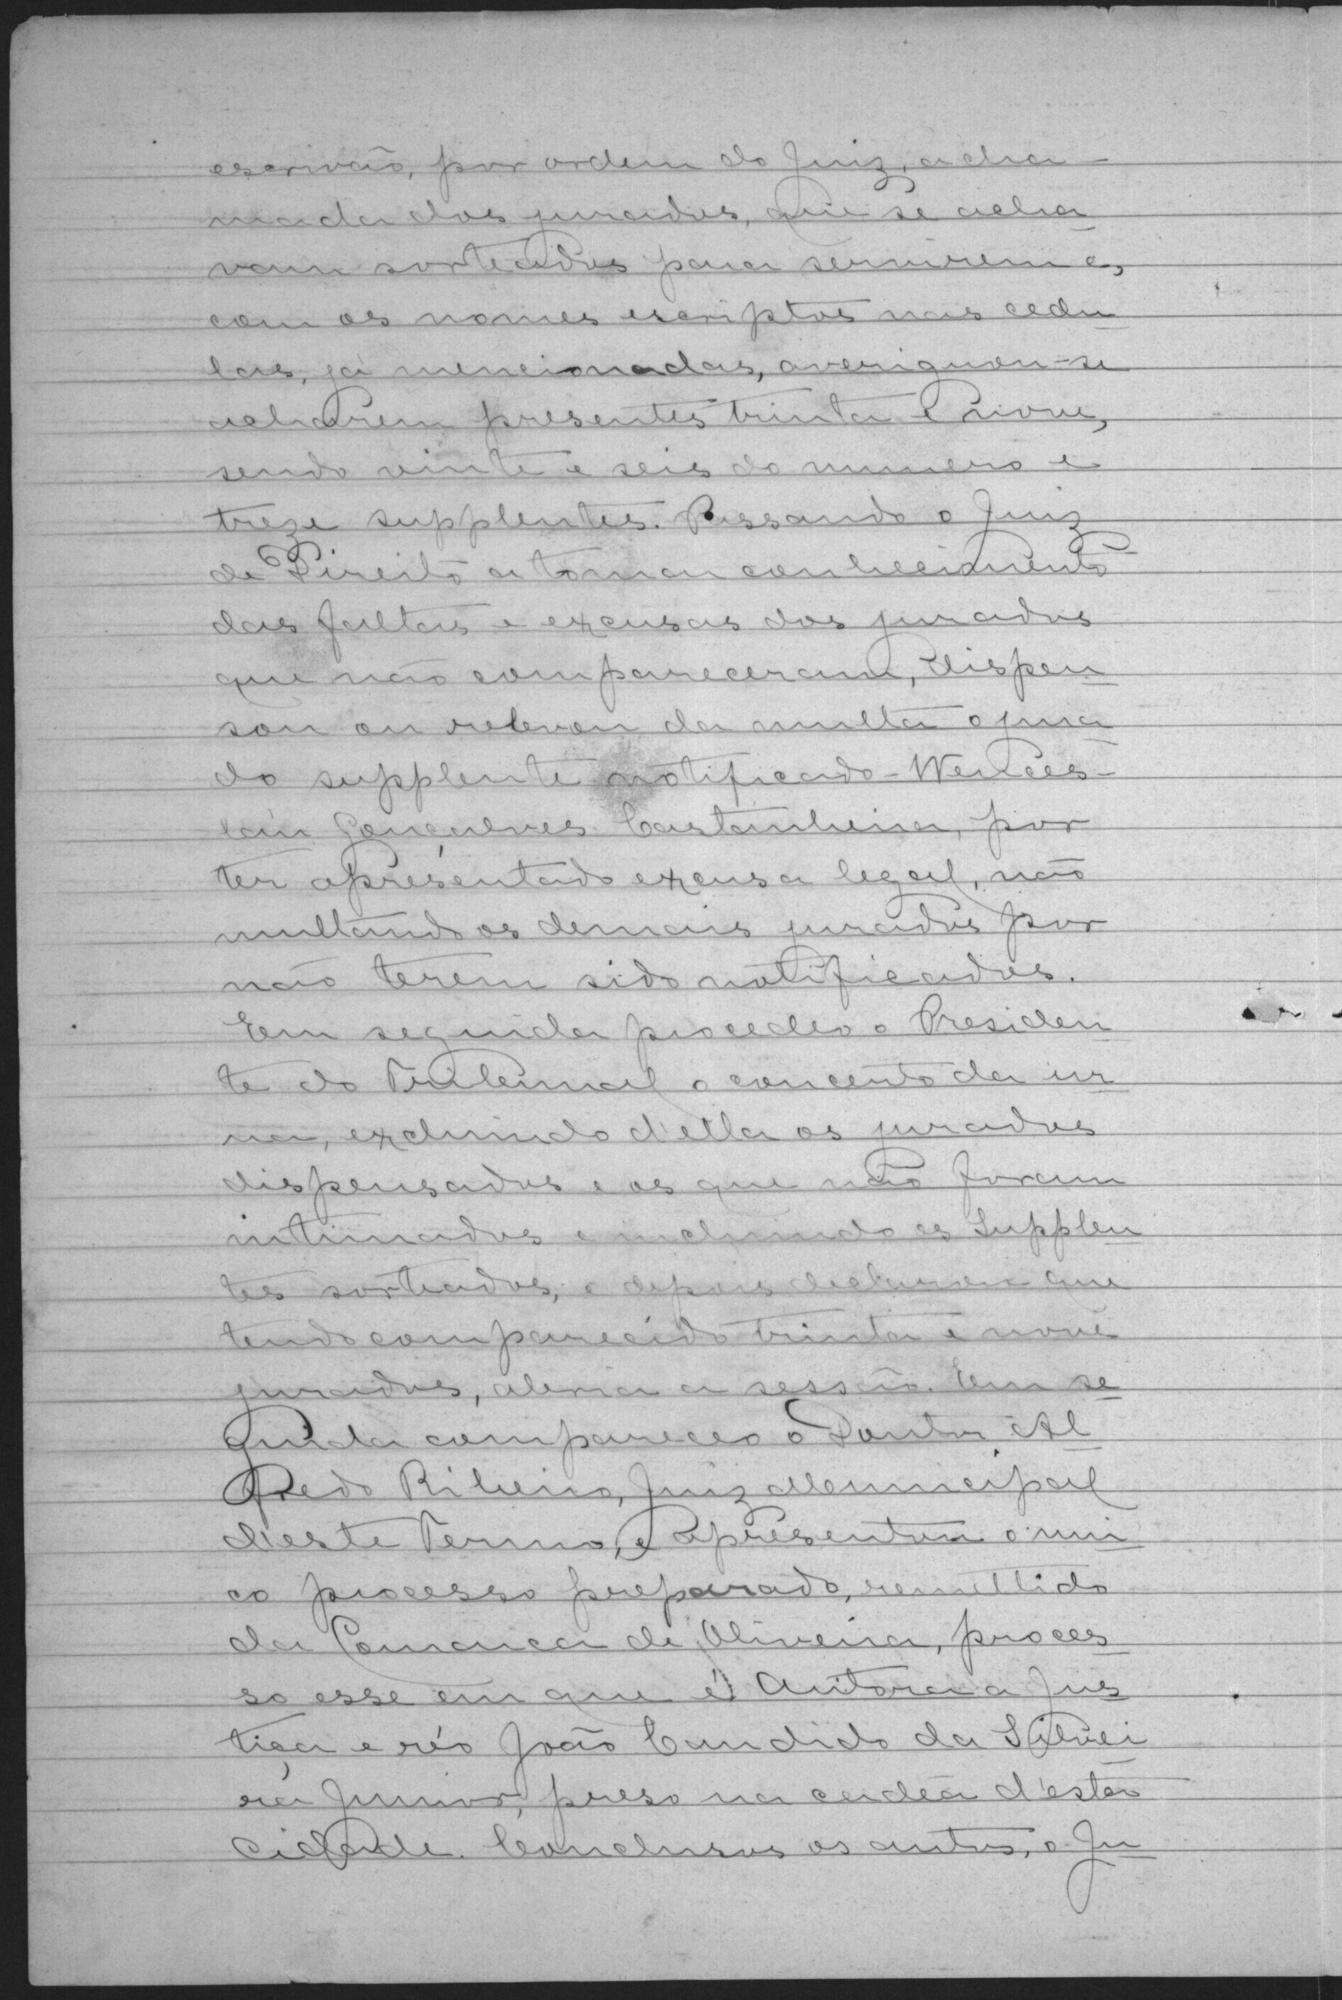 escrivão, por ordem do Juiz, a cha-
mada dos jurados, que se acha
vam sorteados para servirem e,
com os nomes escriptos nas cedu
las, já mencionadas, averiguou-se
acharem presentes trinta e nove,
sendo vinte e seis do numero e
treze supplentes. Passando o Juiz
de Direito a tomar conhecimento
das faltas e excusas dos jurados
que não compareceram, dispen
sou ou relevou da multa o jura
do supplente notificado - Wences-
láu Gonçalves Castanheira, por
ter apresentado excusa legal, não
multando os demais jurados por
não terem sido notificados.
Em seguida procedeo o Presiden
te do Tribunal o concerto da ur
na, excluindo d'ella os jurados
dispensados e os que não foram
intimados e incluindo os Supplen
tes sorteados, e depois declarou que
tendo comparecido trinta e nove
jurados, abria a sessão. Em se
guida compareceo o Doutor Al
fredo Ribeiro, Juiz Municipal
d'este Termo, e apresentou o uni
co processo preparado, remettido
da Comarca de Oliveira, proces
so esse em que é Autora a Jus
tiça e réo João Candido da Silvei
ra Junior, preso na cadêa d'esta
Cidade. Conclusos os autos, o Ju